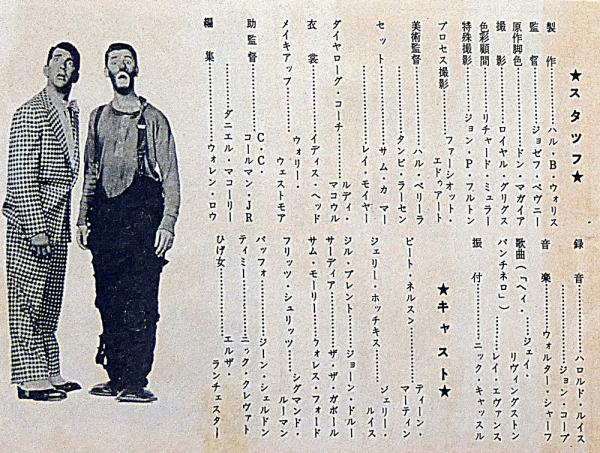 ★スタッフ★
製作……ハル・B・ウォリス
監督……ジョゼフ・ペヴニー
原作脚色……ドン・マガイア
撮影……ロイヤル・グリグス
色彩顧問……リチャード・ミュラー
特殊撮影……ジョン・P・フルトン
プロセス撮影……ファーシオット・
エドゥアート
美術監督……ハル・ペリーラ
タンビ・ラーセン
セット……サム・カマー
レイ・モイヤー
ダイヤローグ・コーチ……ルディ・
マコウル
衣裳……イディス・ヘッド
メイキアップ……ウォリー・
ウェストモア
助監督……C・C・
コールマン・JR
ダニエル・マコーリー
編集……ウォレン・ロウ
録音……ハロルド・ルイス
ジョン・コープ
音楽……ウォルター・シャーフ
歌曲(「ヘイ・……ジェイ・
パンチネロ」)リヴィングストン
レイ・エヴァンス
振付……ニック・キャッスル
★キャスト★
ピート・ネルス>……ディーン・
マーティン
ジェリー・ホッチキス……ジェリー・
ルイス
ジル・ブレント……ジョーン・ドルー
サーディア……ザ・ザ・ガボール
サム・モーリー……ウォレス・フォード
フリッツ・シュリッツ……シグマンド・
ルーマン
パッフォ……ジーン・シェルドン
ティミー……ニック・クレヴァト
ひげ女……エルザ・
ランチェスター